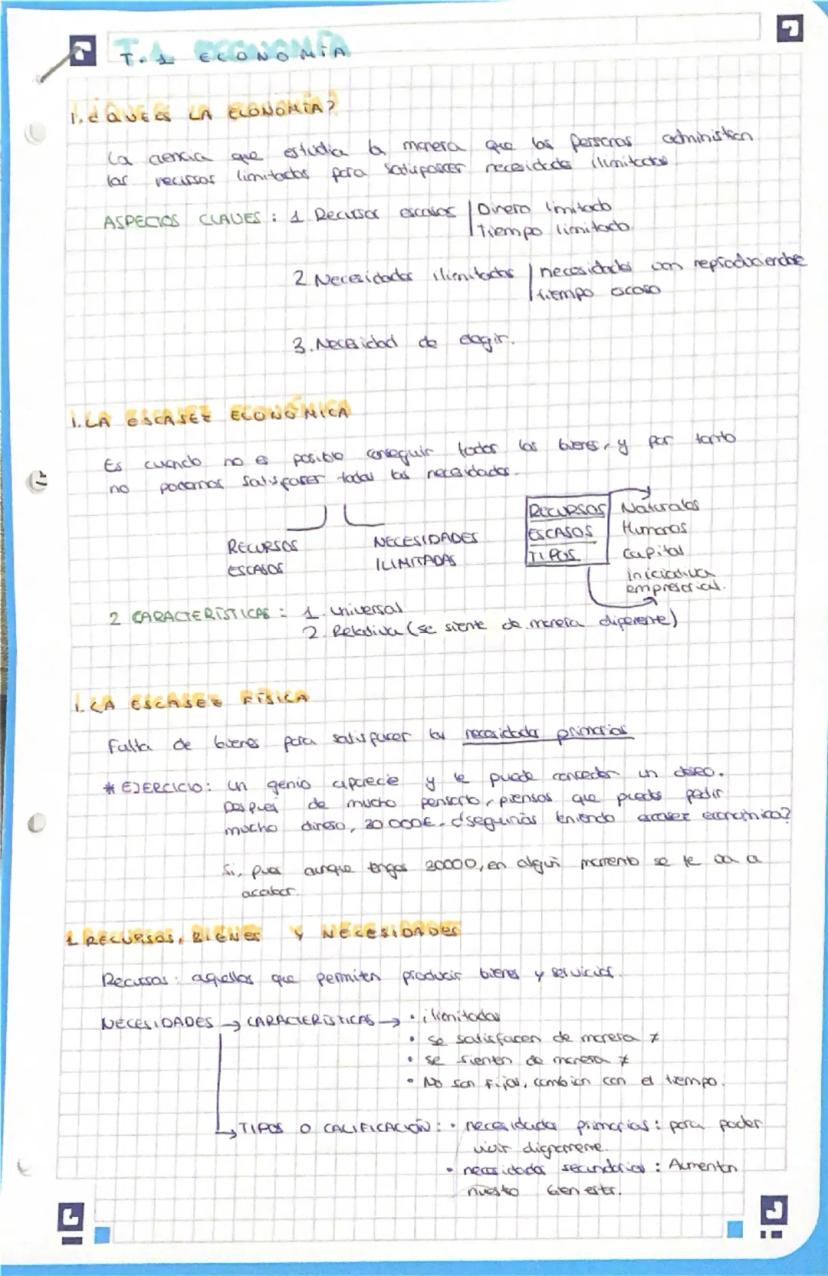 T.1 ECONOMÍA
1. ¿QUÉ ES LA ECONOMÍA?
La ciencia que estudia la manera que las personas administran
los recursos limitados para satisfacer necesidades ilimitadas
ASPECTOS CLAVES : 1 Recursos escasos | Dinero limitado
Tiempo limitado
2 Necesidades ilimitadas | necesidades van reproduciendose
tiempo escaso
3. Necesidad de elegir.
1. LA ESCASEZ ECONÓMICA
Es cuando no es posible conseguir todos los bienes, y por tanto
no podemos satisfacer todas las necesidades.
RECURSOS ESCASOS TIPOS
Naturales
Humanos
Capital
iniciativa
empresarial.
RECURSOS
ESCASOS
NECESIDADES
ILIMITADAS
2 CARACTERÍSTICAS : 1. Universal
2. Relativa (se siente de manera diferente)
1. LA ESCASEZ FÍSICA
Falta de bienes para satisfacer las necesidades primarias
* EJERCICIO: Un genio aparece y te puede conceder un deseo.
Despues de mucho pensarlo, piensas que puedes pedir
mucho dinero, 20.000€. ¿Seguirías teniendo escasez económica?
Si, pues aunque tengas 20000, en algun momento se te va a
acabar.
1. RECURSOS, BIENES Y NECESIDADES
Recursos: aquellos que permiten producir bienes y servicios.
NECESIDADES → CARACTERÍSTICAS → • ilimitadas
• se satisfacen de manera ≠
• se sienten de manera ≠
• No son fijas, cambian con el tiempo.
TIPOS O CALIFICACIÓN: • necesidades primarias : para poder
vivir dignamente.
• necesidades secundarias : Aumentan
nuestro bienestar.